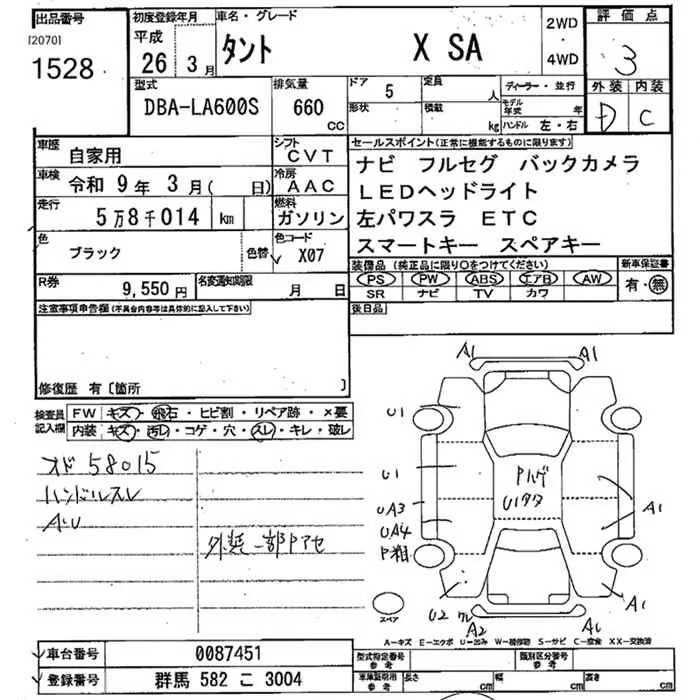 出品番号
[2070]
1528
初度登録年月
平成
26 3月
車名・グレード
タント X SA
2WD
・
4WD
評価点
3
外装 内装
D C
型式
DBA-LA600S
排気量
660
CC
ドア 5
定員
人
形状
積載
kg
ディーラー・並行
モデル年式
年
ハンドル 左・右
車歴
自家用
シフト
CVT
車検
令和 9年 3月( 日)
冷房
AAC
走行
5万8千014 km
燃料
ガソリン
色
ブラック
色替
色コード
X07
R券
9,550円
名変通知期限
月 日
セールスポイント(正常に機能するものに限ります)
ナビ フルセグ バックカメラ
LEDヘッドライト
左パワスラ ETC
スマートキー スペアキー
装備品 (純正品に限り○をつけてください)
PS PW ABS エアB AW
SR ナビ TV カワ
新車保証書
有・無
後日品
注意事項申告欄(不具合内容等は具体的に記入して下さい)
修復歴 有〔箇所 〕
検査員
記入欄
FW キズ・飛石・ヒビ割・リペア跡・×要
内装 キズ・汚レ・コゲ・穴・スレ・キレ・破レ
オド 58015
ハンドルスレ
AU
外装一部Pアセ
A1 A1
U1
U1
Pハゲ
U1タタ
UA3
UA4
A1
U2
A2
A1
スペア
A-キズ E-エクボ U-凹み W-補修跡 S-サビ C-腐食 XX-交換済
車台番号 0087451
登録番号 群馬 582 こ 3004
型式指定番号
参考
類別区分番号
参考
車庫証明用
参考
長さ cm
幅 cm
高さ cm